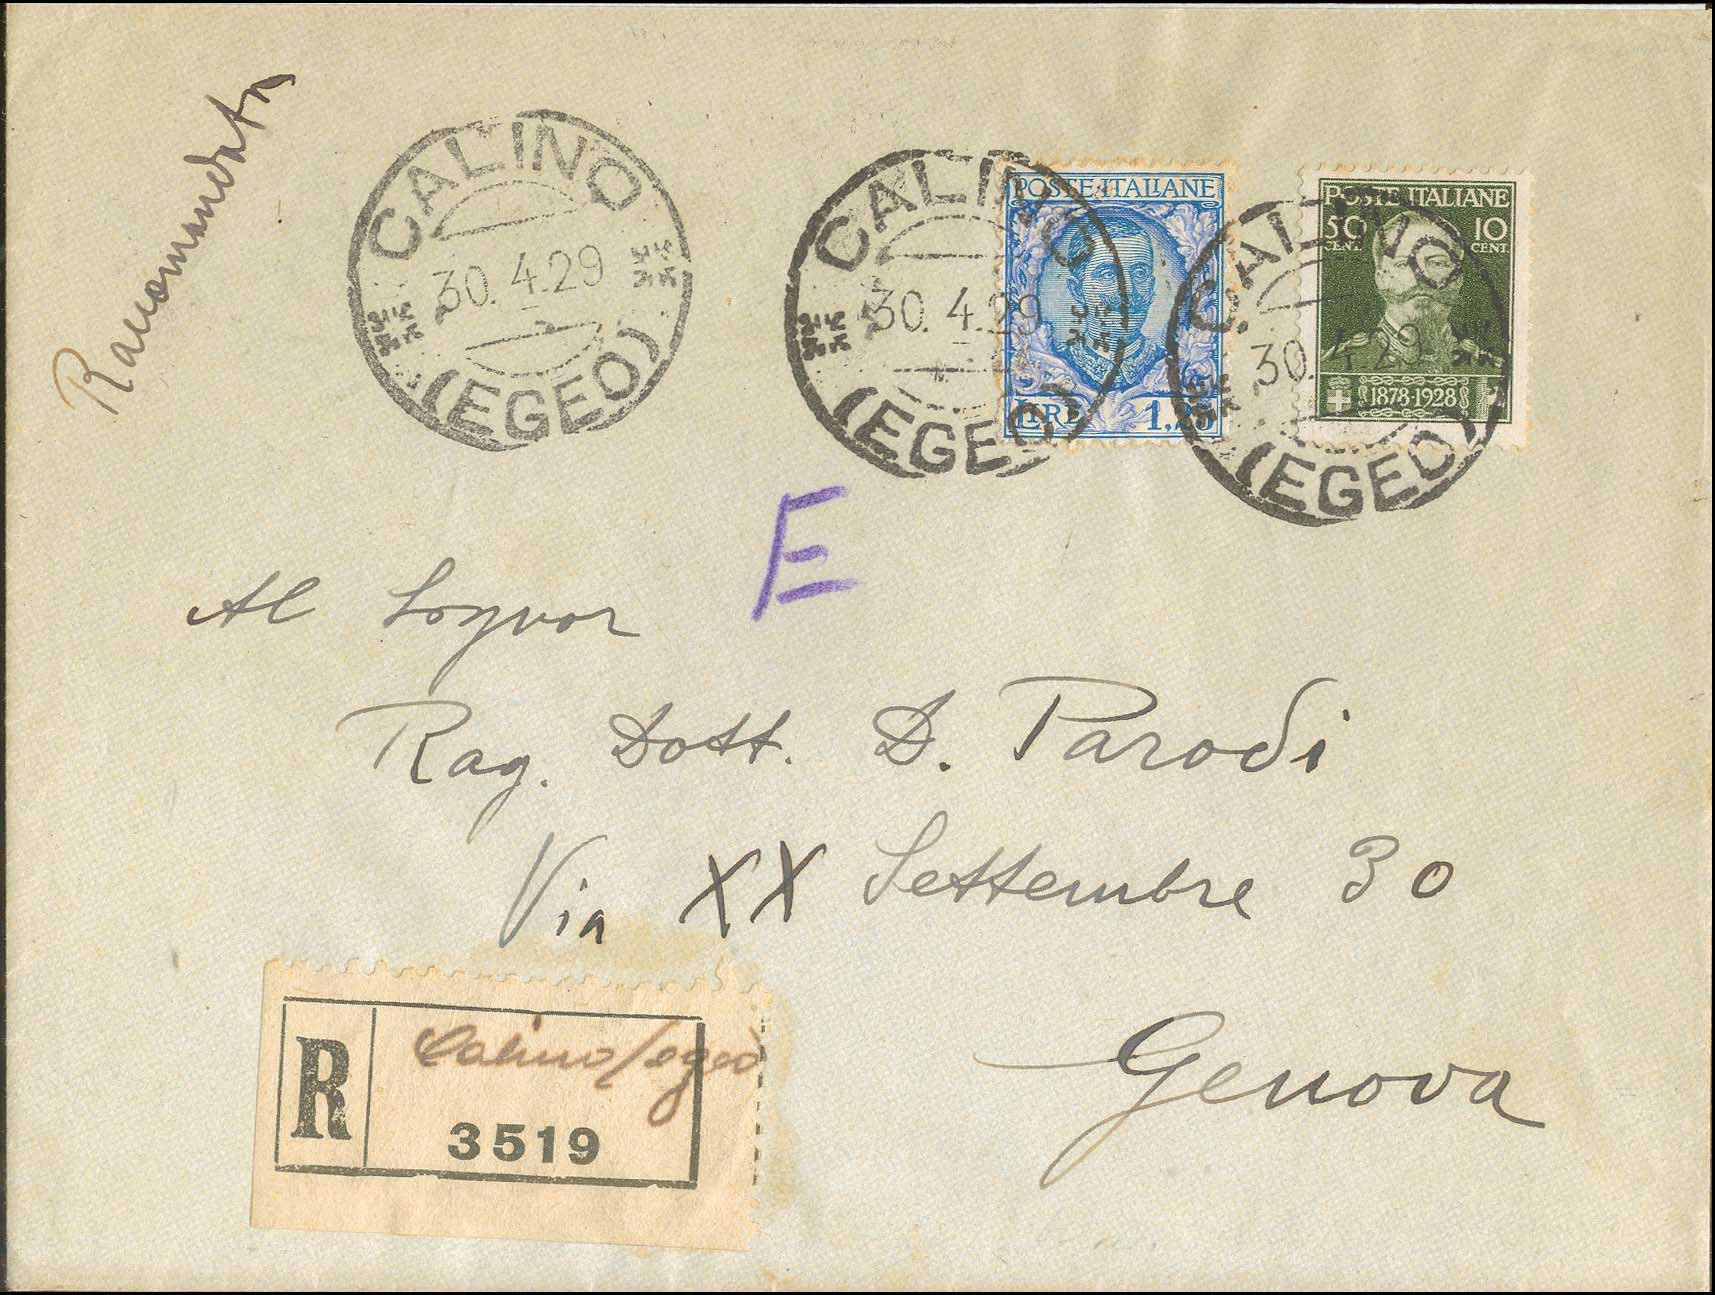 Raccomandata
CALINO
30.4.29
(EGEO)
CALINO
30.4.29
(EGEO)
POSTE ITALIANE
LIRE 1,25
CALINO
30.4.29
(EGEO)
POSTE ITALIANE
50 CENT. 10 CENT.
1878·1928
E
Al Signor
Rag. Dott. D. Parodi
Via XX Settembre 30
Genova
R
Calino/egeo
3519